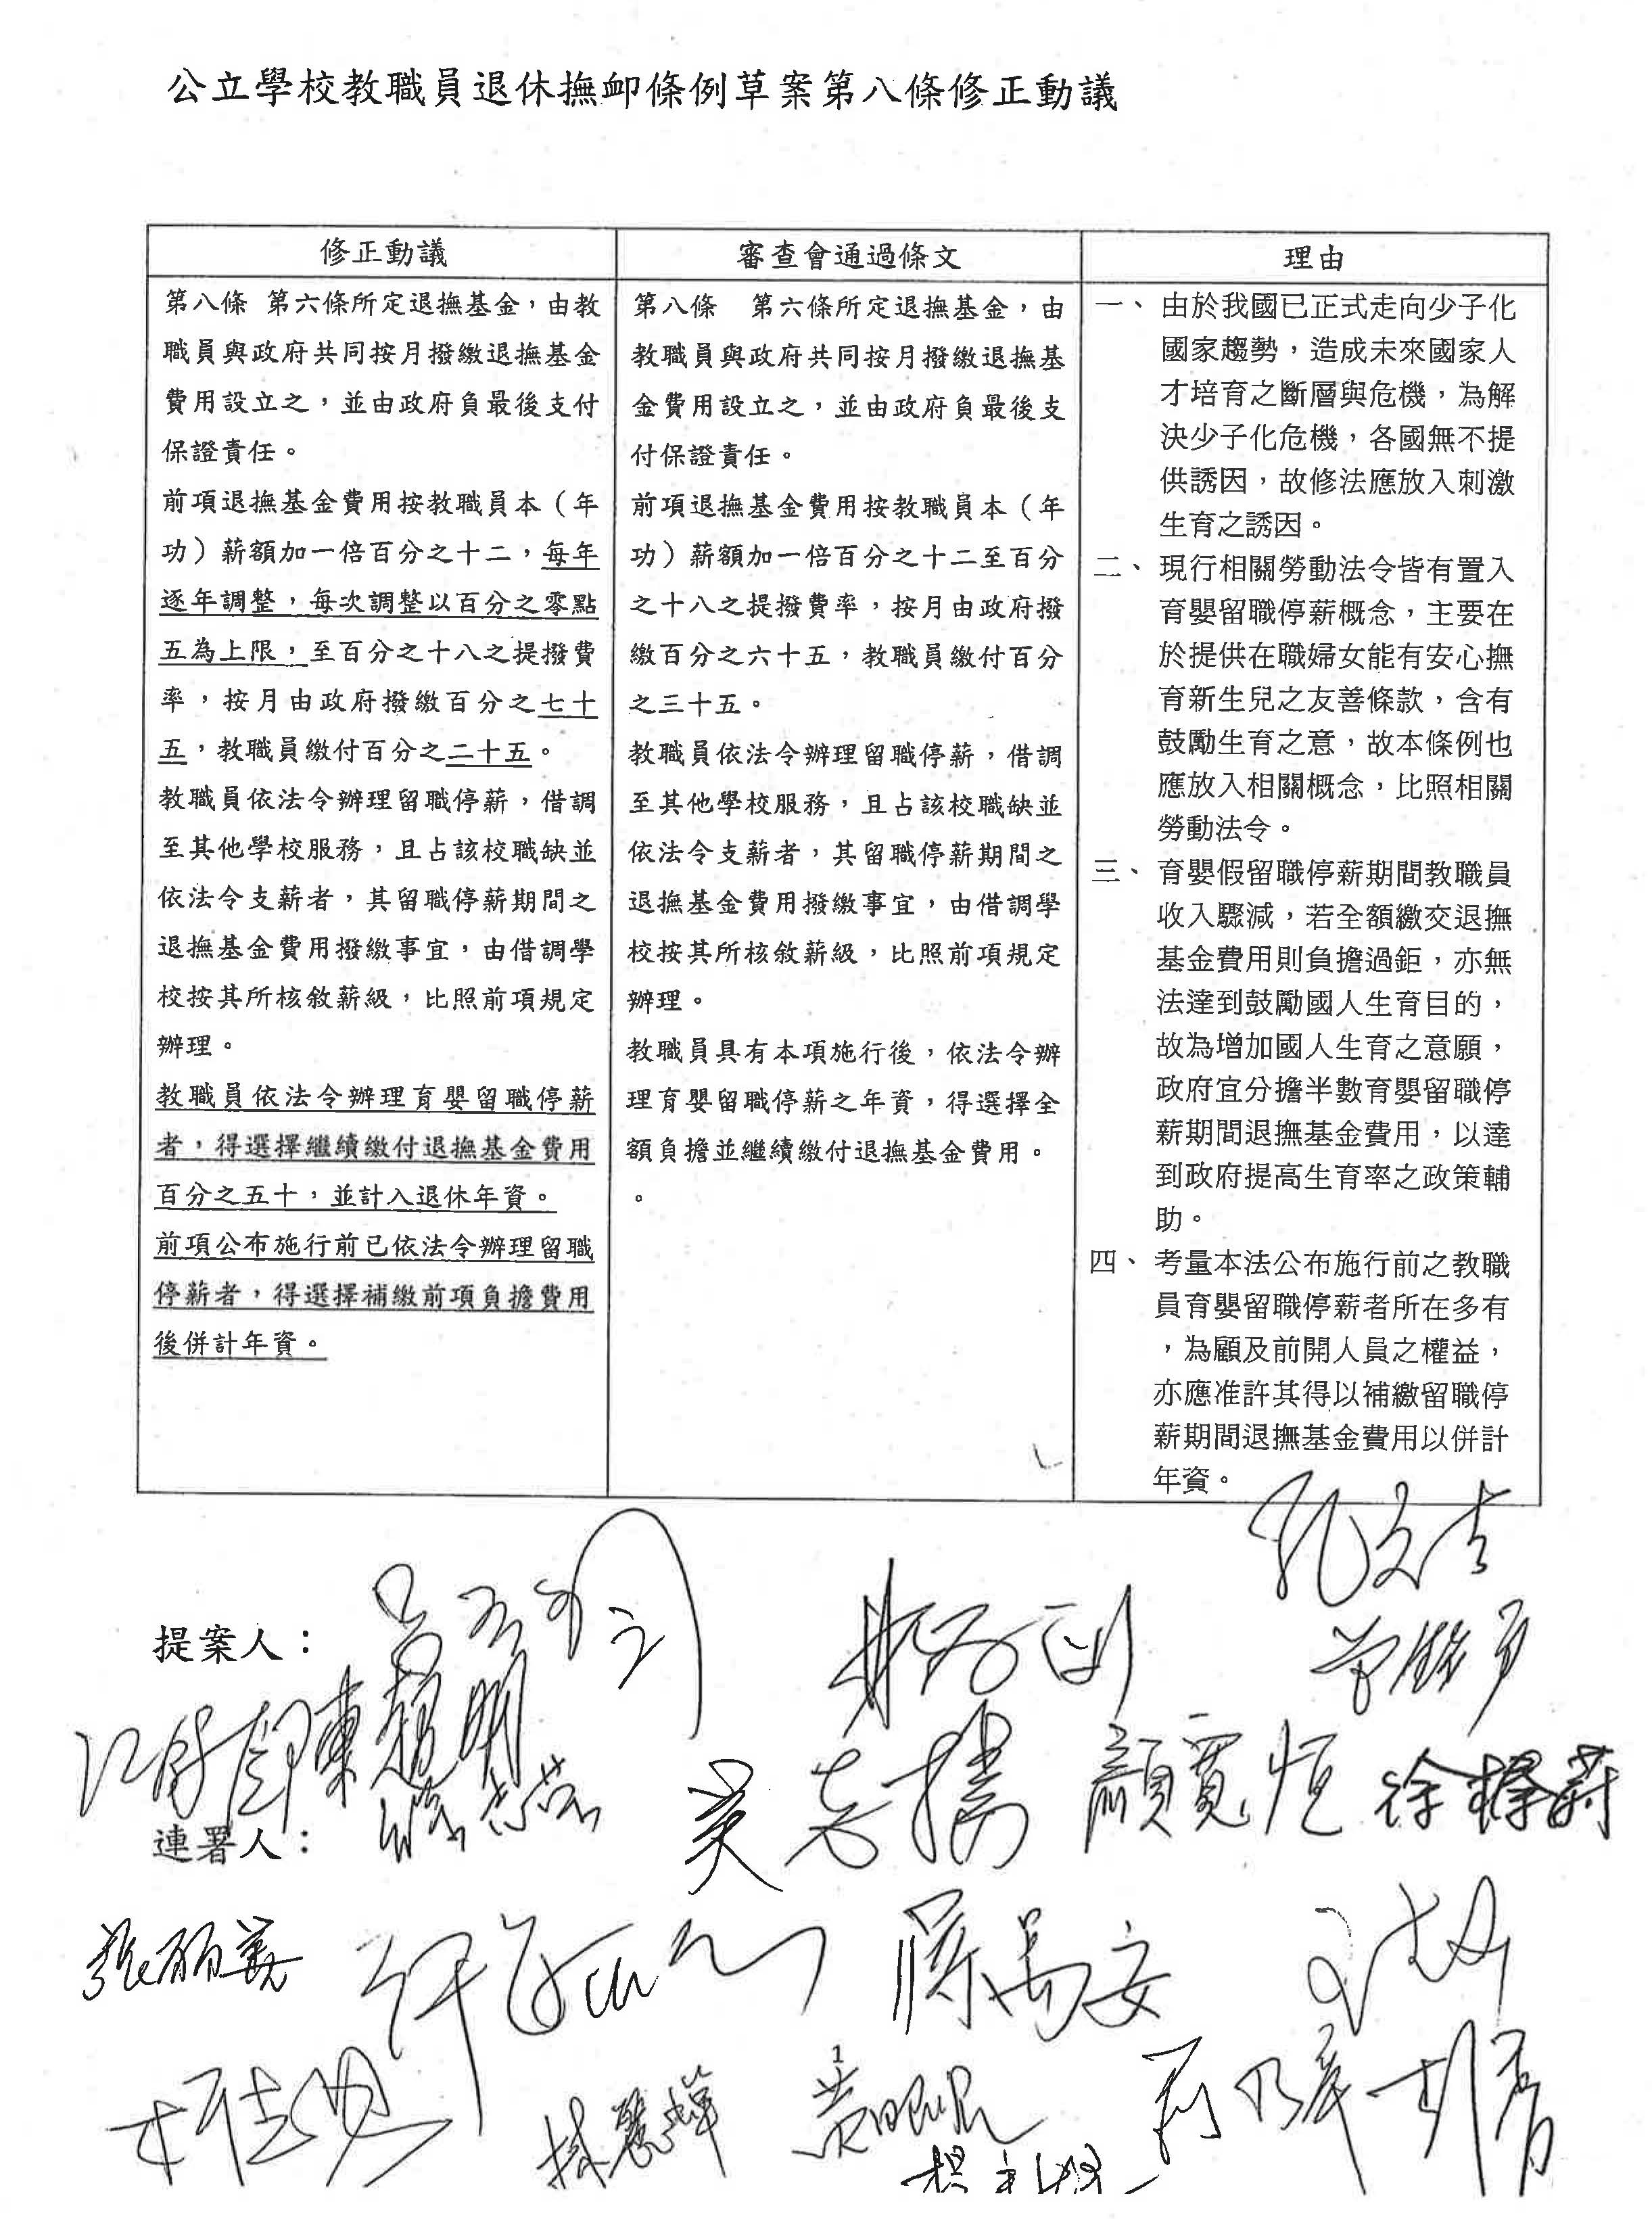 公立學校教職員退休撫卹條例草案第八條修正動議
修正動議
第八條 第六條所定退撫基金,由教
職員與政府共同按月撥繳退撫基金
費用設立之,並由政府負最後支付
保證責任。
前項退撫基金費用按教職員本(年
功)薪額加一倍百分之十二,每年
逐年調整,每次調整以百分之零點
五為上限,至百分之十八之提撥費
率,按月由政府撥繳百分之七十
五,教職員繳付百分之二十五。
教職員依法令辦理留職停薪,借調
至其他學校服務,且占該校職缺並
依法令支薪者,其留職停薪期間之
退撫基金費用撥繳事宜,由借調學
校按其所核敘薪級,比照前項規定
辦理。
教職員依法令辦理育嬰留職停薪
者,得選擇繼續繳付退撫基金費用
百分之五十,並計入退休年資。
前項公布施行前已依法令辦理留職
停薪者,得選擇補繳前項負擔費用
後併計年資。
審查會通過條文
第八條 第六條所定退撫基金,由
教職員與政府共同按月撥繳退撫基
金費用設立之,並由政府負最後支
付保證責任。
前項退撫基金費用按教職員本(年
功)薪額加一倍百分之十二至百分
之十八之提撥費率,按月由政府撥
繳百分之六十五,教職員繳付百分
之三十五。
教職員依法令辦理留職停薪,借調
至其他學校服務,且占該校職缺並
依法令支薪者,其留職停薪期間之
退撫基金費用撥繳事宜,由借調學
校按其所核敘薪級,比照前項規定
辦理。
教職員具有本項施行後,依法令辦
理育嬰留職停薪之年資,得選擇全
額負擔並繼續繳付退撫基金費用。
。
理由
一、由於我國已正式走向少子化
國家趨勢,造成未來國家人
才培育之斷層與危機,為解
決少子化危機,各國無不提
供誘因,故修法應放入刺激
生育之誘因。
二、現行相關勞動法令皆有置入
育嬰留職停薪概念,主要在
於提供在職婦女能有安心撫
育新生兒之友善條款,含有
鼓勵生育之意,故本條例也
應放入相關概念,比照相關
勞動法令。
三、育嬰假留職停薪期間教職員
收入驟減,若全額繳交退撫
基金費用則負擔過鉅,亦無
法達到鼓勵國人生育目的,
故為增加國人生育之意願,
政府宜分擔半數育嬰留職停
薪期間退撫基金費用,以達
到政府提高生育率之政策輔
助。
四、考量本法公布施行前之教職
員育嬰留職停薪者所在多有
,為顧及前開人員之權益,
亦應准許其得以補繳留職停
薪期間退撫基金費用以併計
年資。
孔文吉
提案人:
曾銘宗
陳超明
吳志揚 顏寬恒 徐榛蔚
連署人:
張麗善 蔣萬安
柯志恩 林麗蟬 黃昭順
1